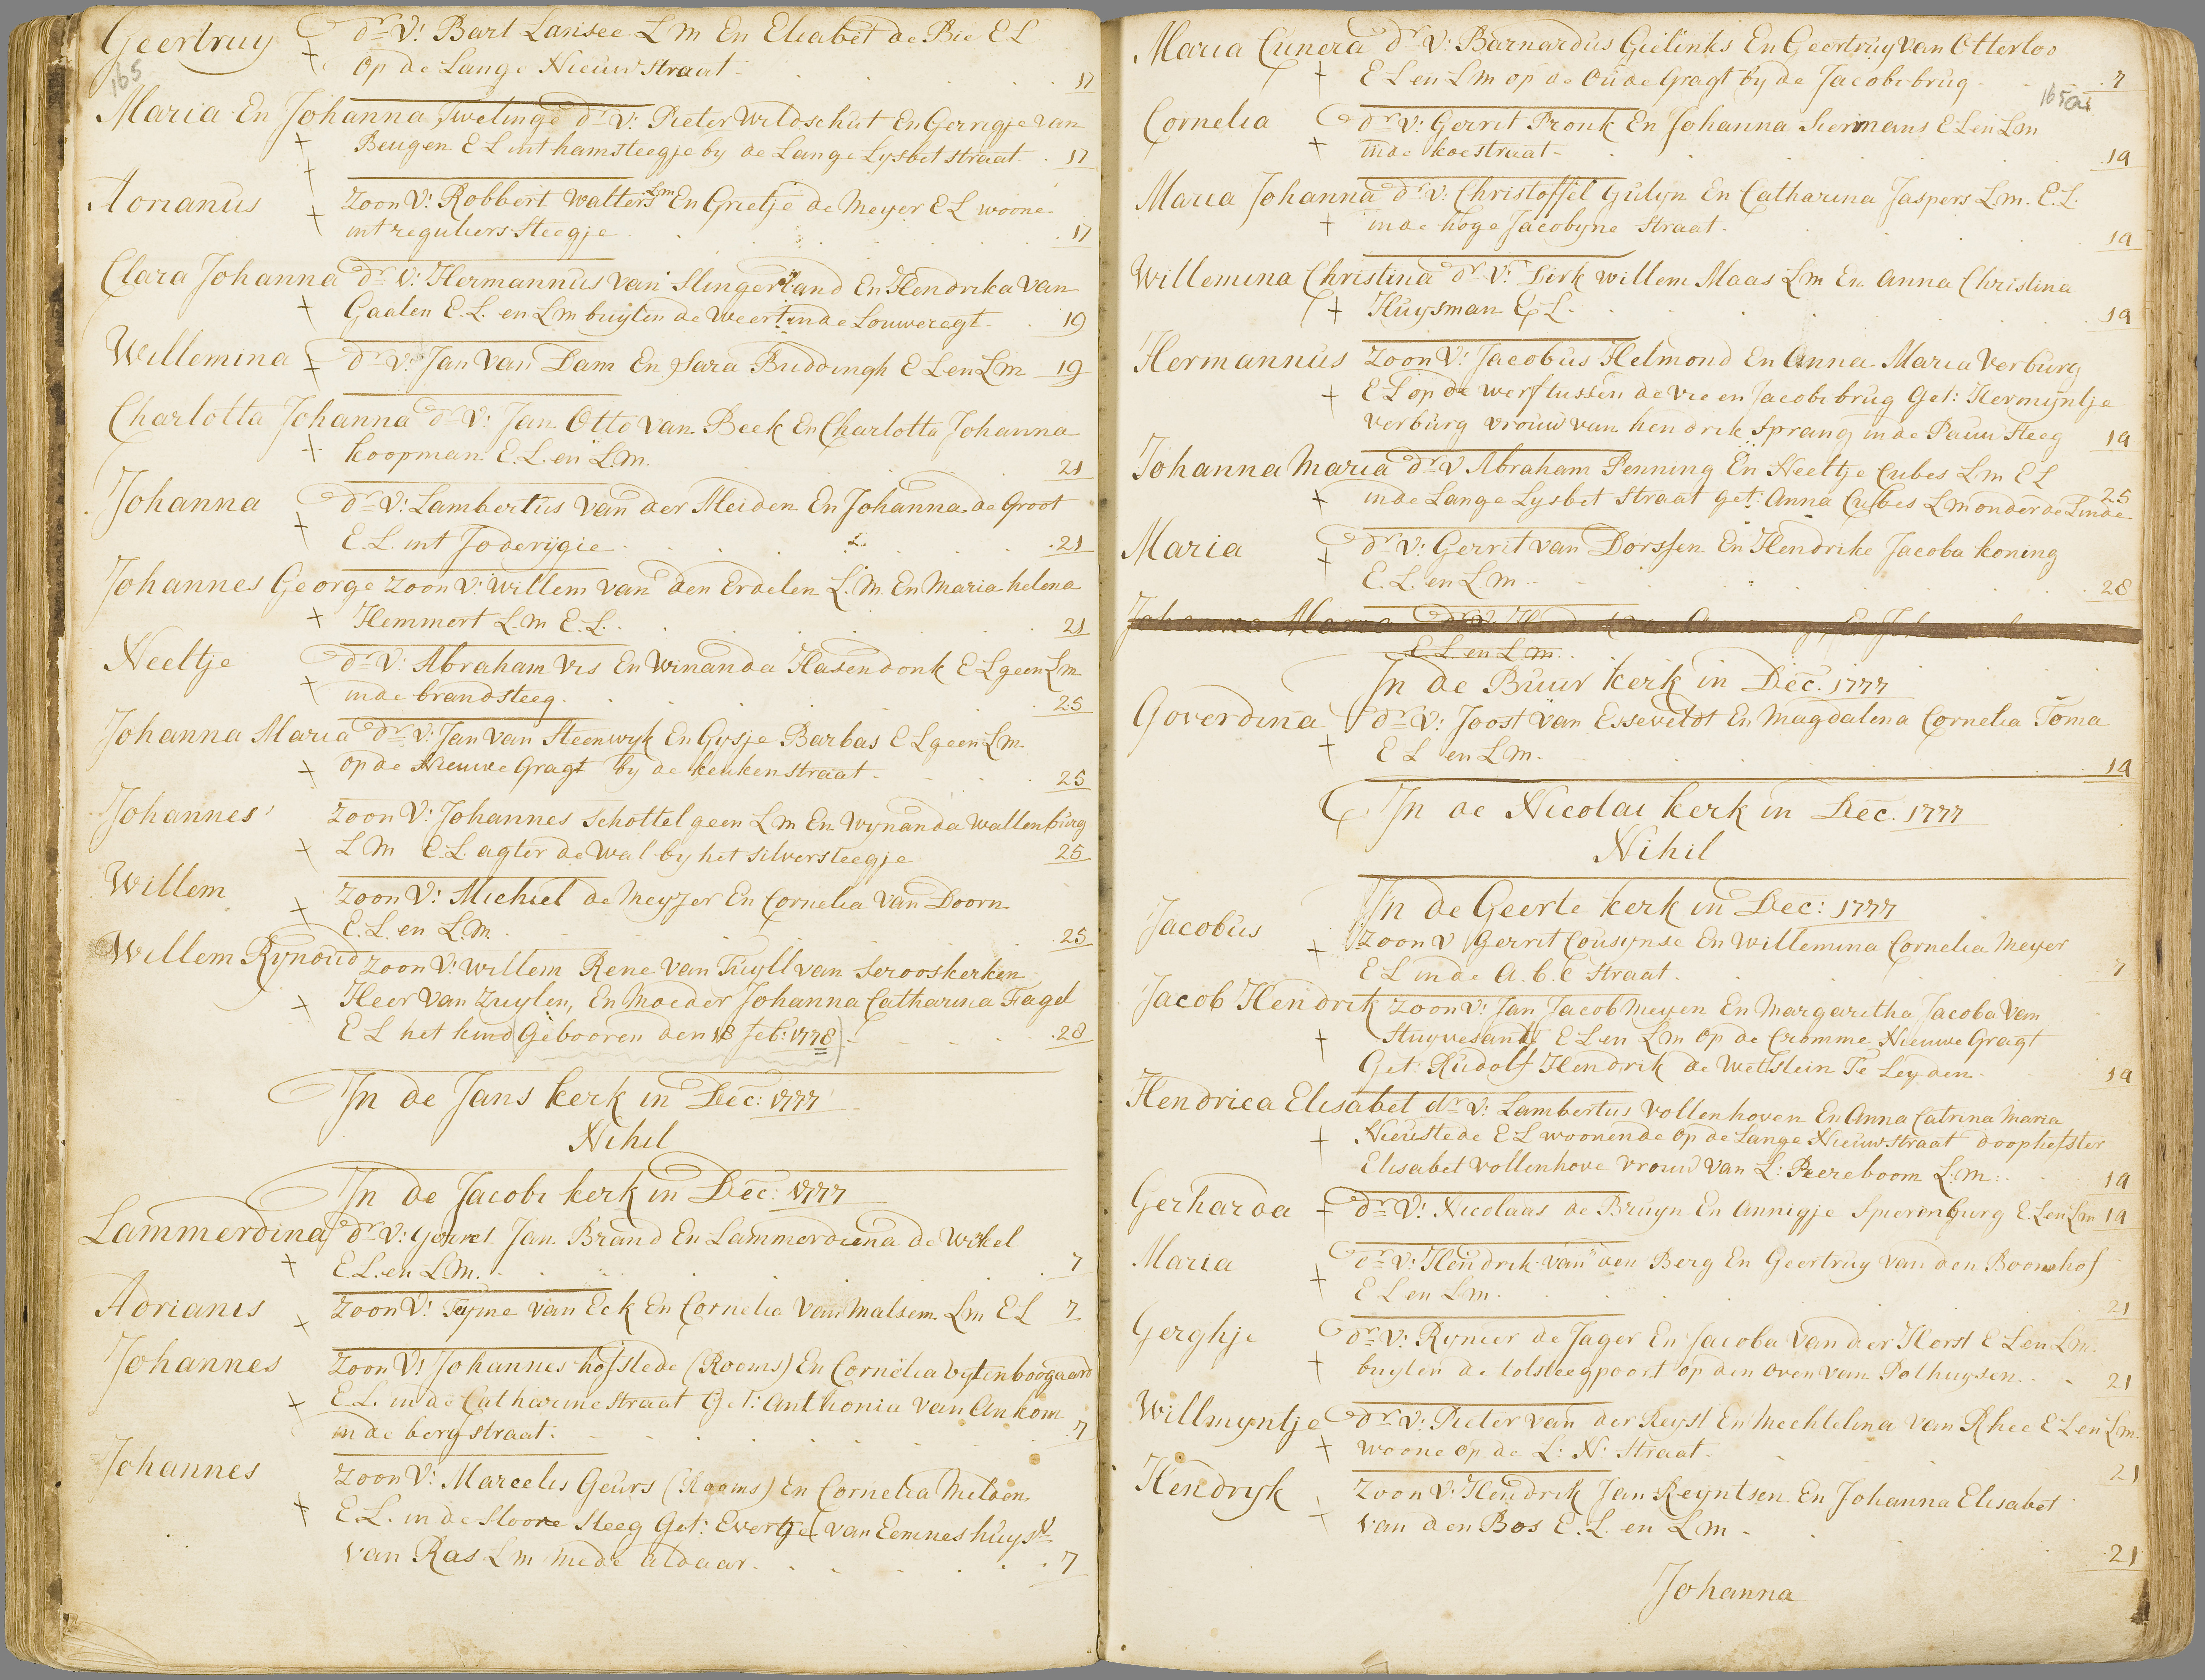 Geertruy dr V: Bart Lansee L M En Elisabet de Bie E L
165 op de Lange Nieuwstraat 17
Maria En Johanna Twelinge dr V: Pieter Wildschut En Gerrigje van
Beugen E L int hamsteegje by de Lange Lysbet straat 17
Adrianus zoon V: Robbert Walters Lm En Grietje de Meyer E L woone
int reguliers Steegje 17
Clara Johanna dr V: Hermannus van Slingerland En Hendrika van
Gaalen E.L. en L m buyten de Weert inde Louweregt 19
Willemina dr V: Jan Van Dam En Sara Buddingh E L en L m 19
Charlotta Johanna dr V: Jan Otto van Beek En Charlotta Johanna
koopman E.L. en L.m. 21
Johanna dr V: Lambertus van der Meiden En Johanna de Groot
E.L. int Joderijgie 21
Johannes George zoon V: willem van den Erdelen L.M. En Maria helena
Hemmert L.m E.L. 21
Neeltje dr V: Abraham Vis En Winanda Hasendonk E L geen L m
inde brandsteeg 25
Johanna Maria dr V: Jan van Steenwyk En Gysje Barbas E L geen L m
op de Nieuwe gragt by de keukenstraat 25
Johannes zoon V: Johannes schottel geen L m En Wynanda Wallenburg
L M E.L. agter de Wal by het silversteegje 25
Willem zoon V: Michiel de Meyzer En Cornelia Van Doorn
E.L. en L.M. 25
Willem Rynoud zoon V: willem Rene van Tuyll van Serooskerken
Heer van Zuylen, En Moeder Johanna Catharina Fagel
E L het kind (Gebooren den 18 feb: 1778) 28
In de Jans kerk in Dec: 1777
Nihil
In de Jacobi kerk in Dec: 1777
Lammerdina dr V: Gerret Jan Brand En Lammerdiena de Wikel
E.L. en L.M. 7
Adrianis zoon V: Tyme van Eck En Cornelia van Malsem L m E L 7
Johannes zoon V: Johannes hofstede (Rooms) En Cornelia Uytenboogaard
E.L. in de Catharine Straat Get: Anthonia van Ankom
in de berg straat: 7
Johannes zoon V: Marcelis Geurs (Rooms) En Cornelia Milden
E.L. in de Stoore Steeg Get: Evertje van Eemnes huysv
van Ras L m mede aldaar 7
Maria Cunera dr V: Barnardus Gielinks En Geertruy Van Otterloo
E L en L m op de Oude Gragt by de Jacobi brug 7
165a
Cornelia dr V: Gerrit Pronk En Johanna Siermans E L en L m
inde koestraat 19
Maria Johanna dr V: Christoffel Gulyn En Catharina Jaspers L.m. E.L.
inde hoge Jacobyne Straat 19
Willemina Christina dr V: Dirk willem Maas L m En Anna Christina
Huysman E L 19
Hermannus zoon V: Jacobus Helmond En Anna Maria Verburg
E L op de werf tussen de Vie en Jacobi brug Get: Hermyntje
verburg vrouw van hendrik Sprang in de Pauw Steeg 19
Johanna Maria dr V Abraham Penning En Neeltje Cubes L m E L
inde Lange Lysbet Straat get: Anna Cubes L m onder de Linde 25
Maria dr V: Gerrit van Dorssen En Hendrike Jacoba koning
E.L. en L.m. 28
Johanna Maria
E L. en L m.
In de Buur kerk in Dec. 1777
Goverdina dr V: Joost van Esseveldt En Magdalena Cornelia Toma
E L en L m. 19
In de Nicolai kerk in Dec. 1777
Nihil
In de Geerte kerk in Dec: 1777
Jacobus zoon V Gerrit Cousynse En Willemina Cornelia Meyer
E L in de A.b.c straat 7
Jacob Hendrik zoon V: Jan Jacob Meyen En Margaretha Jacoba van
Stuyvesandt E L en L m op de Cromme Nieuwe Gragt
Get: Rudolf Hendrik de Wetstein Te Leyden 19
Hendrica Elisabet dr V: Lambertus Vollenhoven En Anna Catrina Maria
Nieustede E L woonende op de Lange Nieuwstraat doophefster
Elisabet vollenhove vrouw van L: Peereboom L:m: 19
Gerharda dr V: Nicolaas de Bruyn En Annigje Spierenburg E L en L m 19
Maria dr V: Hendrik van den Berg En Geertruy van den Boomhof
E L en L m. 21
Gerghje dr V: Rynier de Jager En Jacoba van der Horst E L en L m.
buyten de tolsteegpoort op den oven van Polhuysen 21
Willmyntje dr V: Pieter van der Reyst En Mechtelina van Rhee E L en L m.
woone op de L: N: Straat 21
Hendryk zoon V: Hendrik Jan Reyntsen En Johanna Elisabet
van den Bos E.L. en L m 21
Johanna